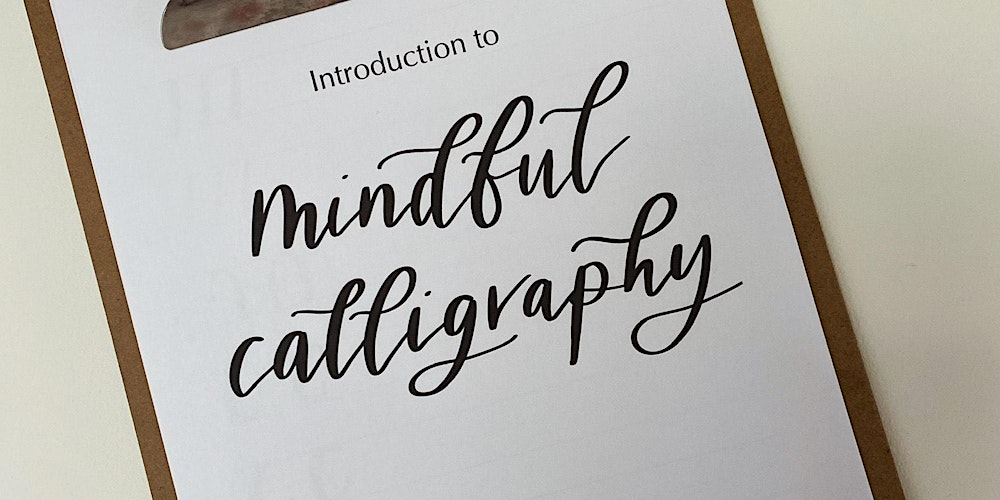 Introduction to
mindful
calligraphy